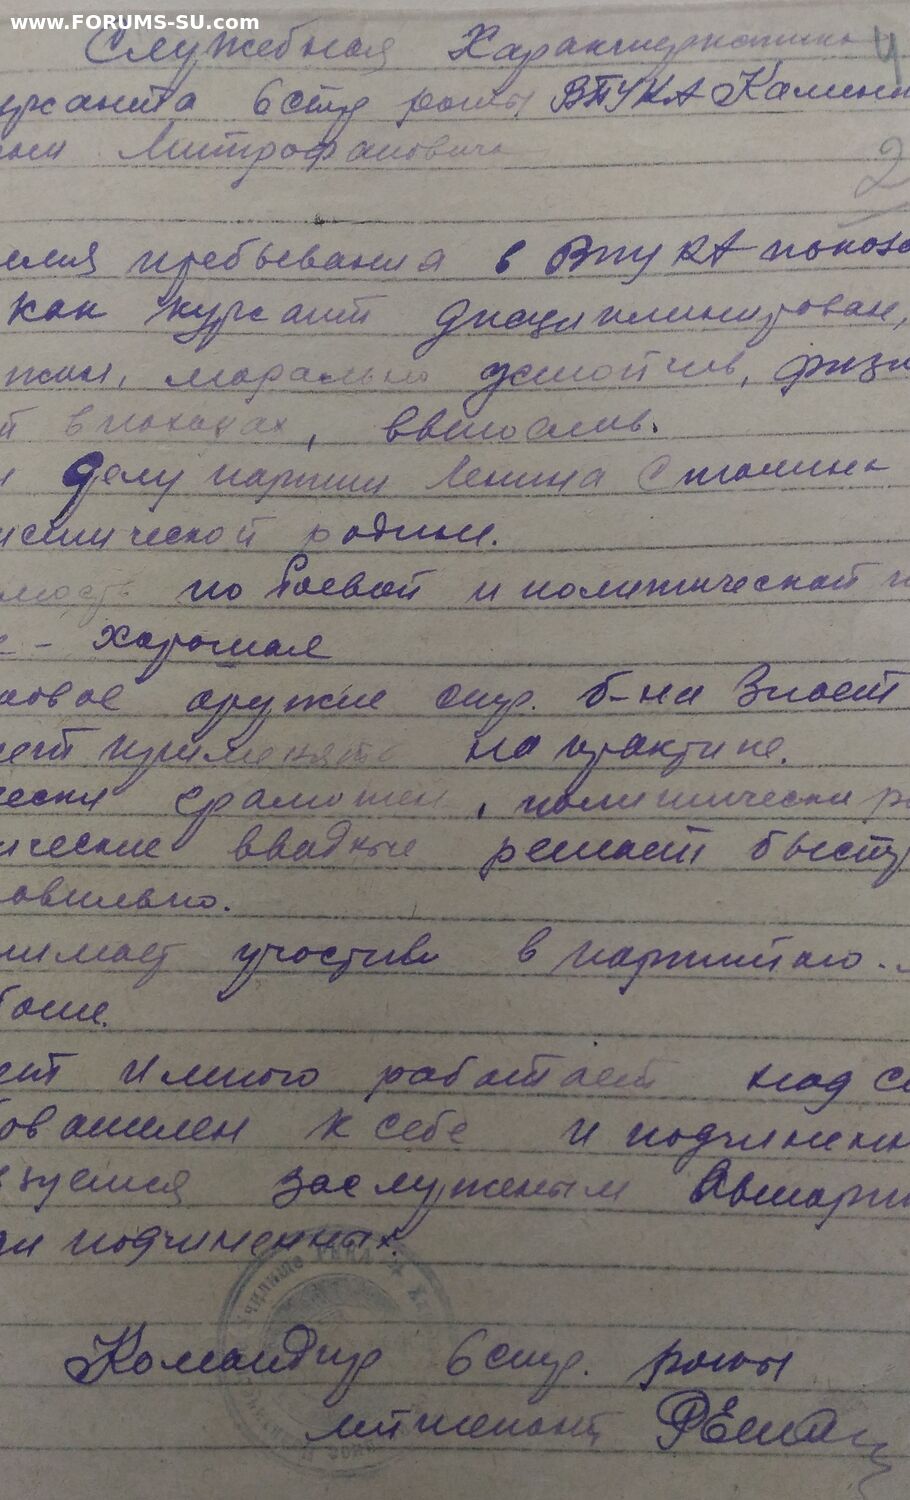 www.FORUMS-SU.com
Служебная Характеристика 4
урсанта 6 стр роты ВПУ КА Калинин
Митрофановича
2
емя пребывания в ВПУ КА показа
как курсант дисциплинирован,
жан, морально устойчив, физи
й в походах, вынослив.
и делу партии Ленина Сталина
истической родины.
мость по боевой и политической п
е - хорошая
ковое оружие стр. б-на знает
еет применять на практике.
чески грамотен, политически ра
ические вводные решает быстр
авильно.
нимает участие в партийно-
боте.
ет и много работает над со
бователен к себе и подчиненн
ьзуется заслуженым авторит
ди подчиненных.
училище
Командир 6 стр. роты
лейтенант